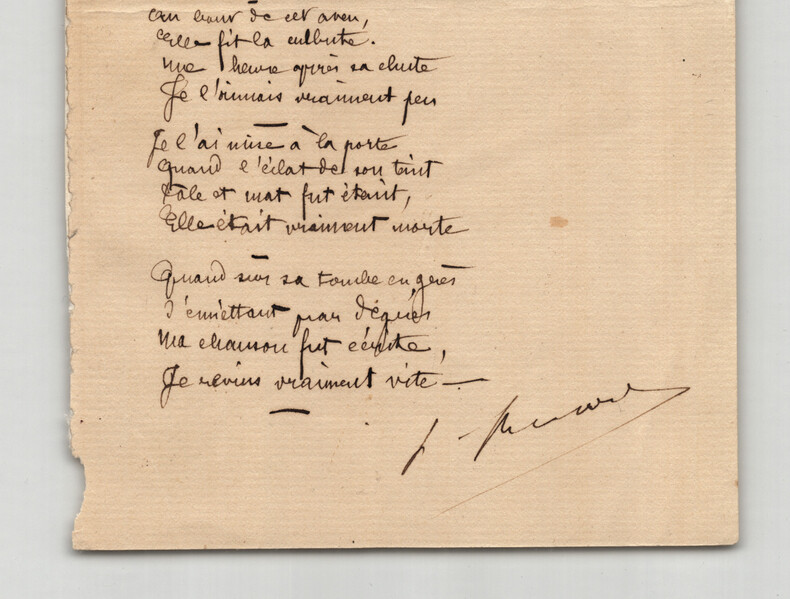 Au bout de cet aveu,
Elle fit la culbute.
Une heure après sa chute
Je l'aimais vraiment peu
Je l'ai mise à la porte
Quand l'éclat de son teint
Pâle et mat fut éteint,
Elle était vraiment morte
Quand sur sa tombe en grès
S'émiettant par degrés
Ma chanson fut écrite,
Je revins vraiment vite —
J. Renard